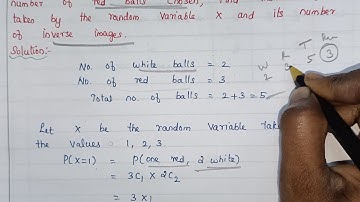 number of red balls chosen, find the
taken by the random variable X and its number
of inverse images.
Solution:-
No. of white balls = 2
No. of red balls = 3
Total no. of balls = 2+3 = 5
T
R
5
3
W
2
Let X be the random variable take
the values : 1, 2, 3.
P(X=1) = P(one red, 2 white)
= 3C1 X 2C2
= 3 X 1